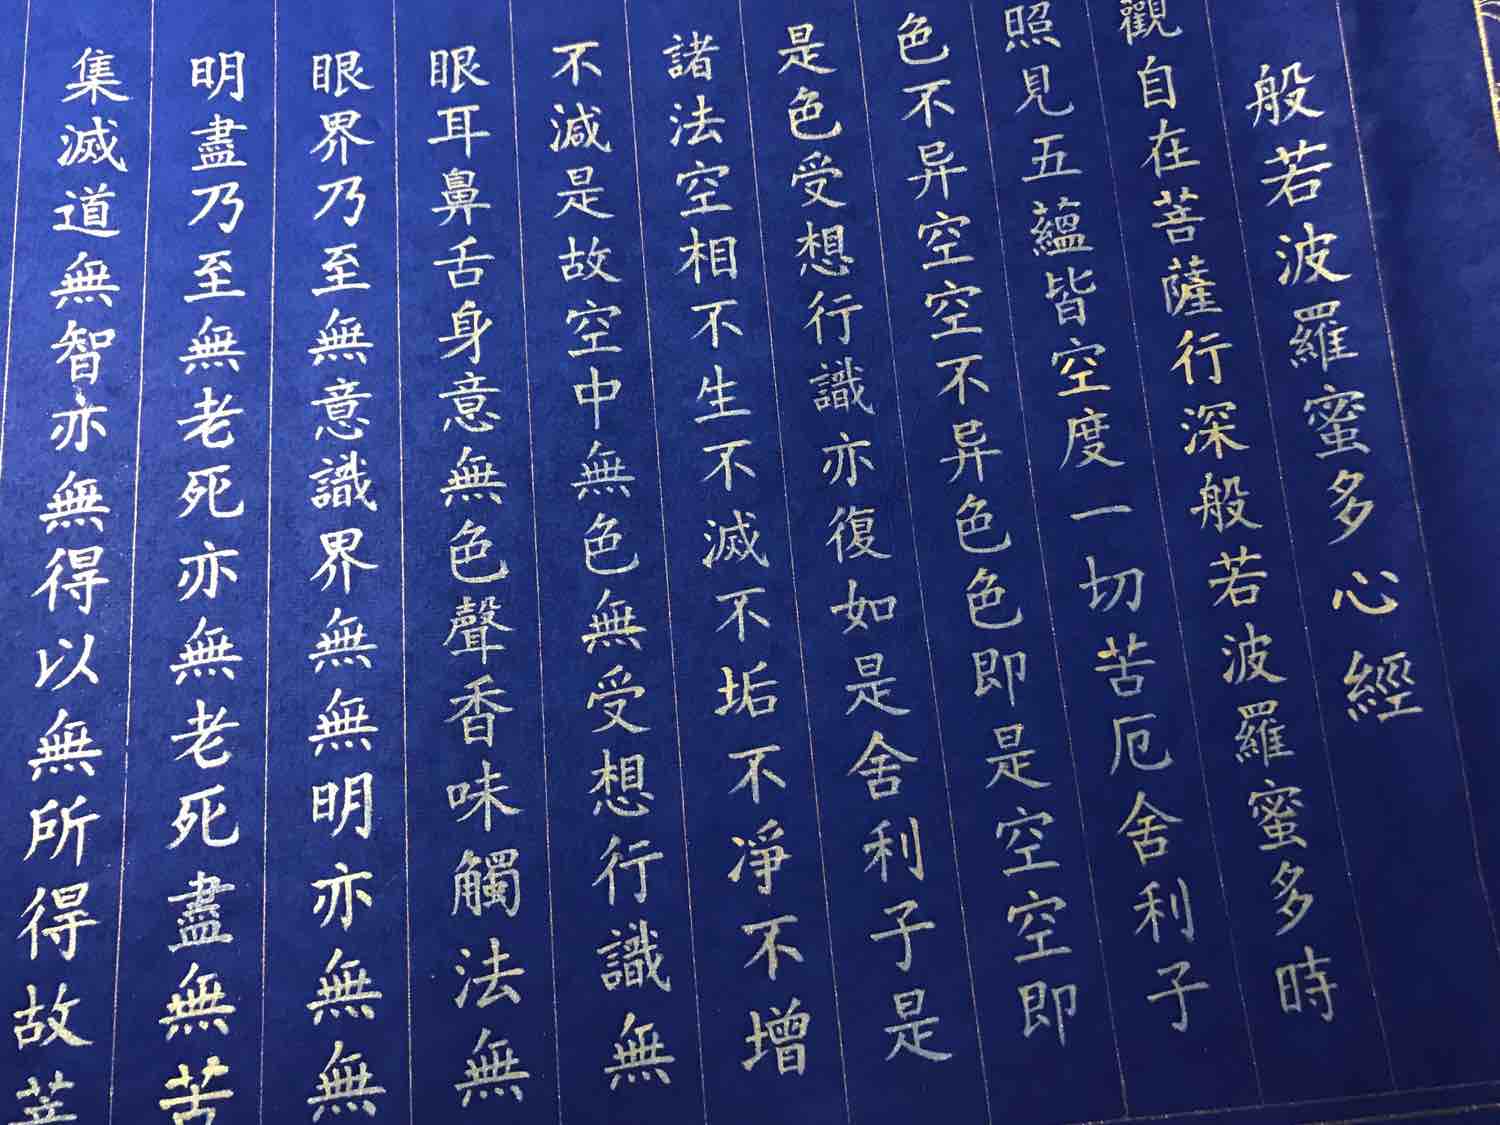 般若波羅蜜多心經
觀自在菩薩行深般若波羅蜜多時
照見五蘊皆空度一切苦厄舍利子
色不异空空不异色色即是空空即
是色受想行識亦復如是舍利子是
諸法空相不生不滅不垢不凈不增
不減是故空中無色無受想行識無
眼耳鼻舌身意無色聲香味觸法無
眼界乃至無意識界無無明亦無無
明盡乃至無老死亦無老死盡無苦
集滅道無智亦無得以無所得故菩